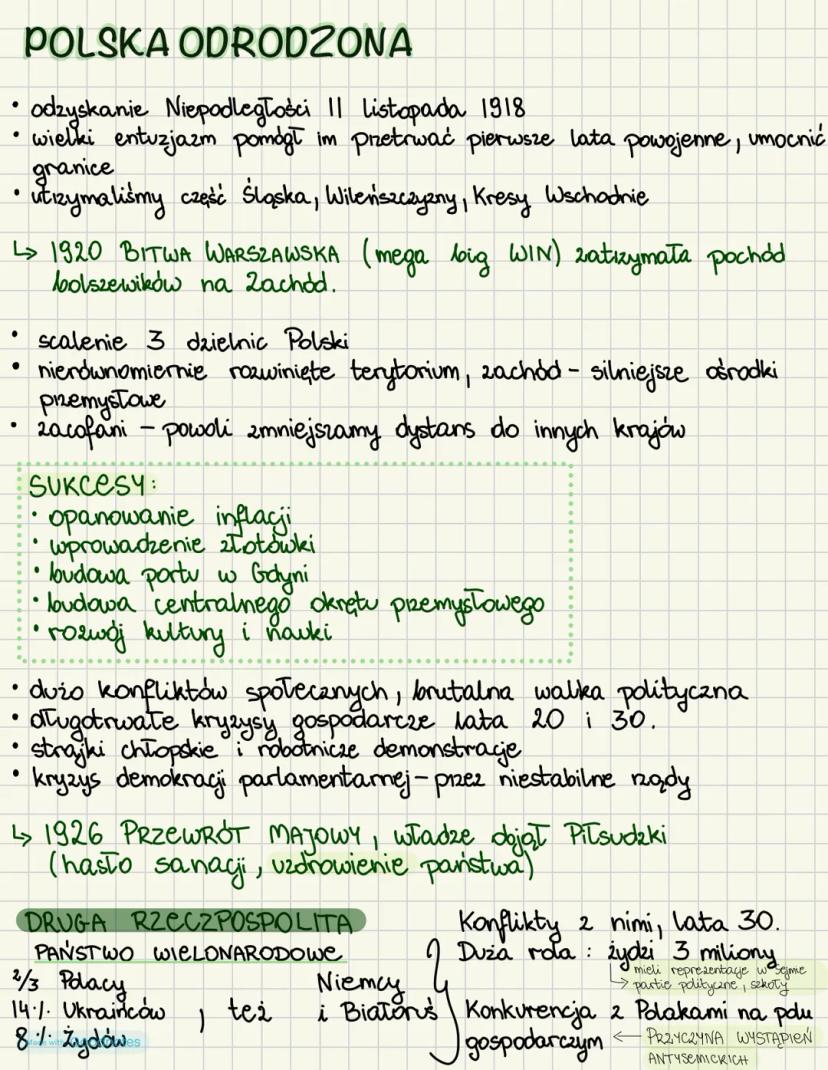 POLSKA ODRODZONA
• odzyskanie Niepodległości 11 listopada 1918
• wielki entuzjazm pomógł im przetrwać pierwsze lata powojenne, umocnić
granice
• utrzymaliśmy część Śląska, Wileńszczyzny, Kresy Wschodnie
↳ 1920 BITWA WARSZAWSKA (mega big WIN) zatrzymała pochód
bolszewików na Zachód.
• scalenie 3 dzielnic Polski
• nierównomiernie rozwinięte terytorium, zachód - silniejsze ośrodki
przemysłowe
• zacofani - powoli zmniejszamy dystans do innych krajów
SUKCESY:
• opanowanie inflacji
• wprowadzenie złotówki
• budowa portu w Gdyni
• budowa centralnego okrętu przemysłowego
• rozwój kultury i nauki
• dużo konfliktów społecznych, brutalna walka polityczna
• długotrwałe kryzysy gospodarcze lata 20 i 30.
• strajki chłopskie i robotnicze demonstracje
• kryzys demokracji parlamentarnej - przez niestabilne rządy
↳ 1926 PRZEWRÓT MAJOWY, władze objął Piłsudzki
(hasło sanacji, uzdrowienie państwa)
DRUGA RZECZPOSPOLITA
PAŃSTWO WIELONARODOWE
2/3 Polacy
14% Ukraińców, też
8% Żydów
Niemcy
i Białoruś
Konflikty z nimi, lata 30.
Duża rola: żydzi 3 miliony
↳ mieli reprezentacje w sejmie
partie polityczne, szkoły
Konkurencja z Polakami na polu
gospodarczym ← PRZYCZYNA WYSTĄPIEŃ
ANTYSEMICKICH